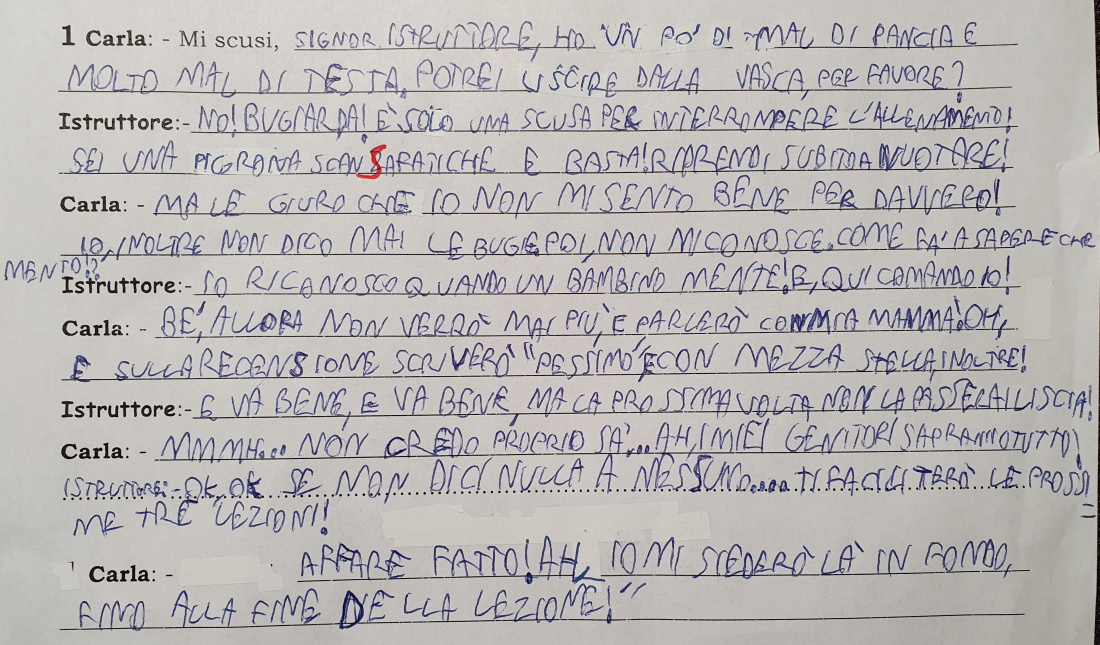 1 Carla: - Mi scusi, SIGNOR ISTRUTTORE, HO UN PO' DI MAL DI PANCIA E
MOLTO MAL DI TESTA. POTREI USCIRE DALLA VASCA, PER FAVORE?
Istruttore:- NO! BUGIARDA! È SOLO UNA SCUSA PER INTERROMPERE L'ALLENAMENTO!
SEI UNA PIGRONA SCANSAFATICHE E BASTA! RIPRENDI SUBITO A NUOTARE!
Carla: - MA LE GIURO CHE IO NON MI SENTO BENE PER DAVVERO!
IO, INOLTRE NON DICO MAI LE BUGIE POI, NON MI CONOSCE. COME FA' A SAPERE CHE
MENTO!?
Istruttore:- IO RICANOSCO QUANDO UN BAMBINO MENTE! E, QUI COMANDO IO!
Carla: - BE', ALLORA NON VERRÒ MAI PIÙ, E PARLERÒ CON MIA MAMMA! OH,
E SULLA RECENSIONE SCRIVERÒ "PESSIMO" E CON MEZZA STELLA, INOLTRE!
Istruttore:- E VA BENE, E VA BENE, MA LA PROSSIMA VOLTA NON LA PASSERAI LISCIA!
Carla: - MMMH... NON CREDO PROPRIO SA'... AH, I MIEI GENITORI SAPRANNO TUTTO!
ISTRUTTORE:- OK, OK SE NON DICI NULLA A NESSUNO.... TI FACILITERÒ LE PROSSI
ME TRE LEZIONI!
Carla: - AFFARE FATTO! AH, IO MI SIEDERÒ LÀ IN FONDO,
FINO ALLA FINE DELLA LEZIONE!"